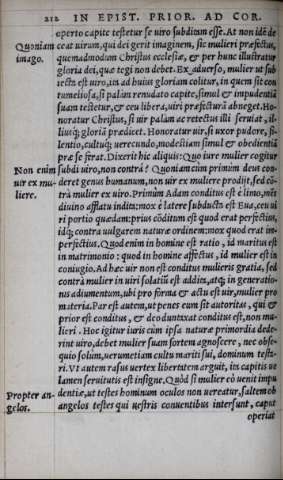 212 IN EPIST. PRIOR. AD COR.
operto capite testetur se uiro subditum esse. At non idē de
Quoniam
imago.
ceat uirum, qui dei gerit imaginem, sic mulieri præfectus,
quemadmodum Christus ecclesiæ, & per hunc illustratur
gloria dei, quæ tegi non debet. Ex aduerso, mulier ut sub
iecta est uiro, ita ad huius gloriam colitur, in quem sit con
tumeliosa, si palàm renudato capite, simul & impudentiā
suam testetur, & ceu libera, uiri præfecturā abneget. Ho-
noratur Christus, si uir palàm ac retectus illi seruiat, il-
liusq; gloriā prædicet. Honoratur uir, si uxor pudore, si-
lentio, cultuq; uerecundo, modestiam simul & obedientiā
præ se ferat. Dixerit hic aliquis: Quo iure mulier cogitur
Non enim
uir ex mu-
liere.
subdi uiro, non contrà? Quoniam cùm primùm deus con-
deret genus humanum, non uir ex muliere prodijt, sed cō-
trà mulier ex uiro. Primùm Adam conditus est è limo, mēs
diuino afflatu indita: mox è latere subducta est Eua, ceu ui
ri portio quædam: prius cōditum est quod erat perfectius,
idq; contra uulgarem naturæ ordinem: mox quod erat im-
perfectius. Quod enim in homine est ratio, id maritus est
in matrimonio: quod in homine affectus, id mulier est in
coniugio. Ad hæc uir non est conditus mulieris gratia, sed
contrà mulier in uiri solatiū est addita, atq; in generatio-
nis adiumentum, ubi pro forma & actu est uir, mulier pro
materia. Par est autem, ut penes eum sit autoritas, qui &
prior est conditus, & deo duntaxat conditus est, non mu-
lieri. Hoc igitur iuris cùm ipsa naturæ primordia dede-
rint uiro, debet mulier suam sortem agnoscere, nec obse-
quio solùm, uerumetiam cultu mariti sui, dominum testa-
ri. Vt autem rasus uertex libertatem arguit, ita capitis ue
lamen seruitutis est insigne. Quòd si mulier eò uenit impu
Propter an-
gelos.
dentiæ, ut testes hominum oculos non uereatur, saltem ob
angelos testes qui uestris conuentibus intersunt, caput
operiat